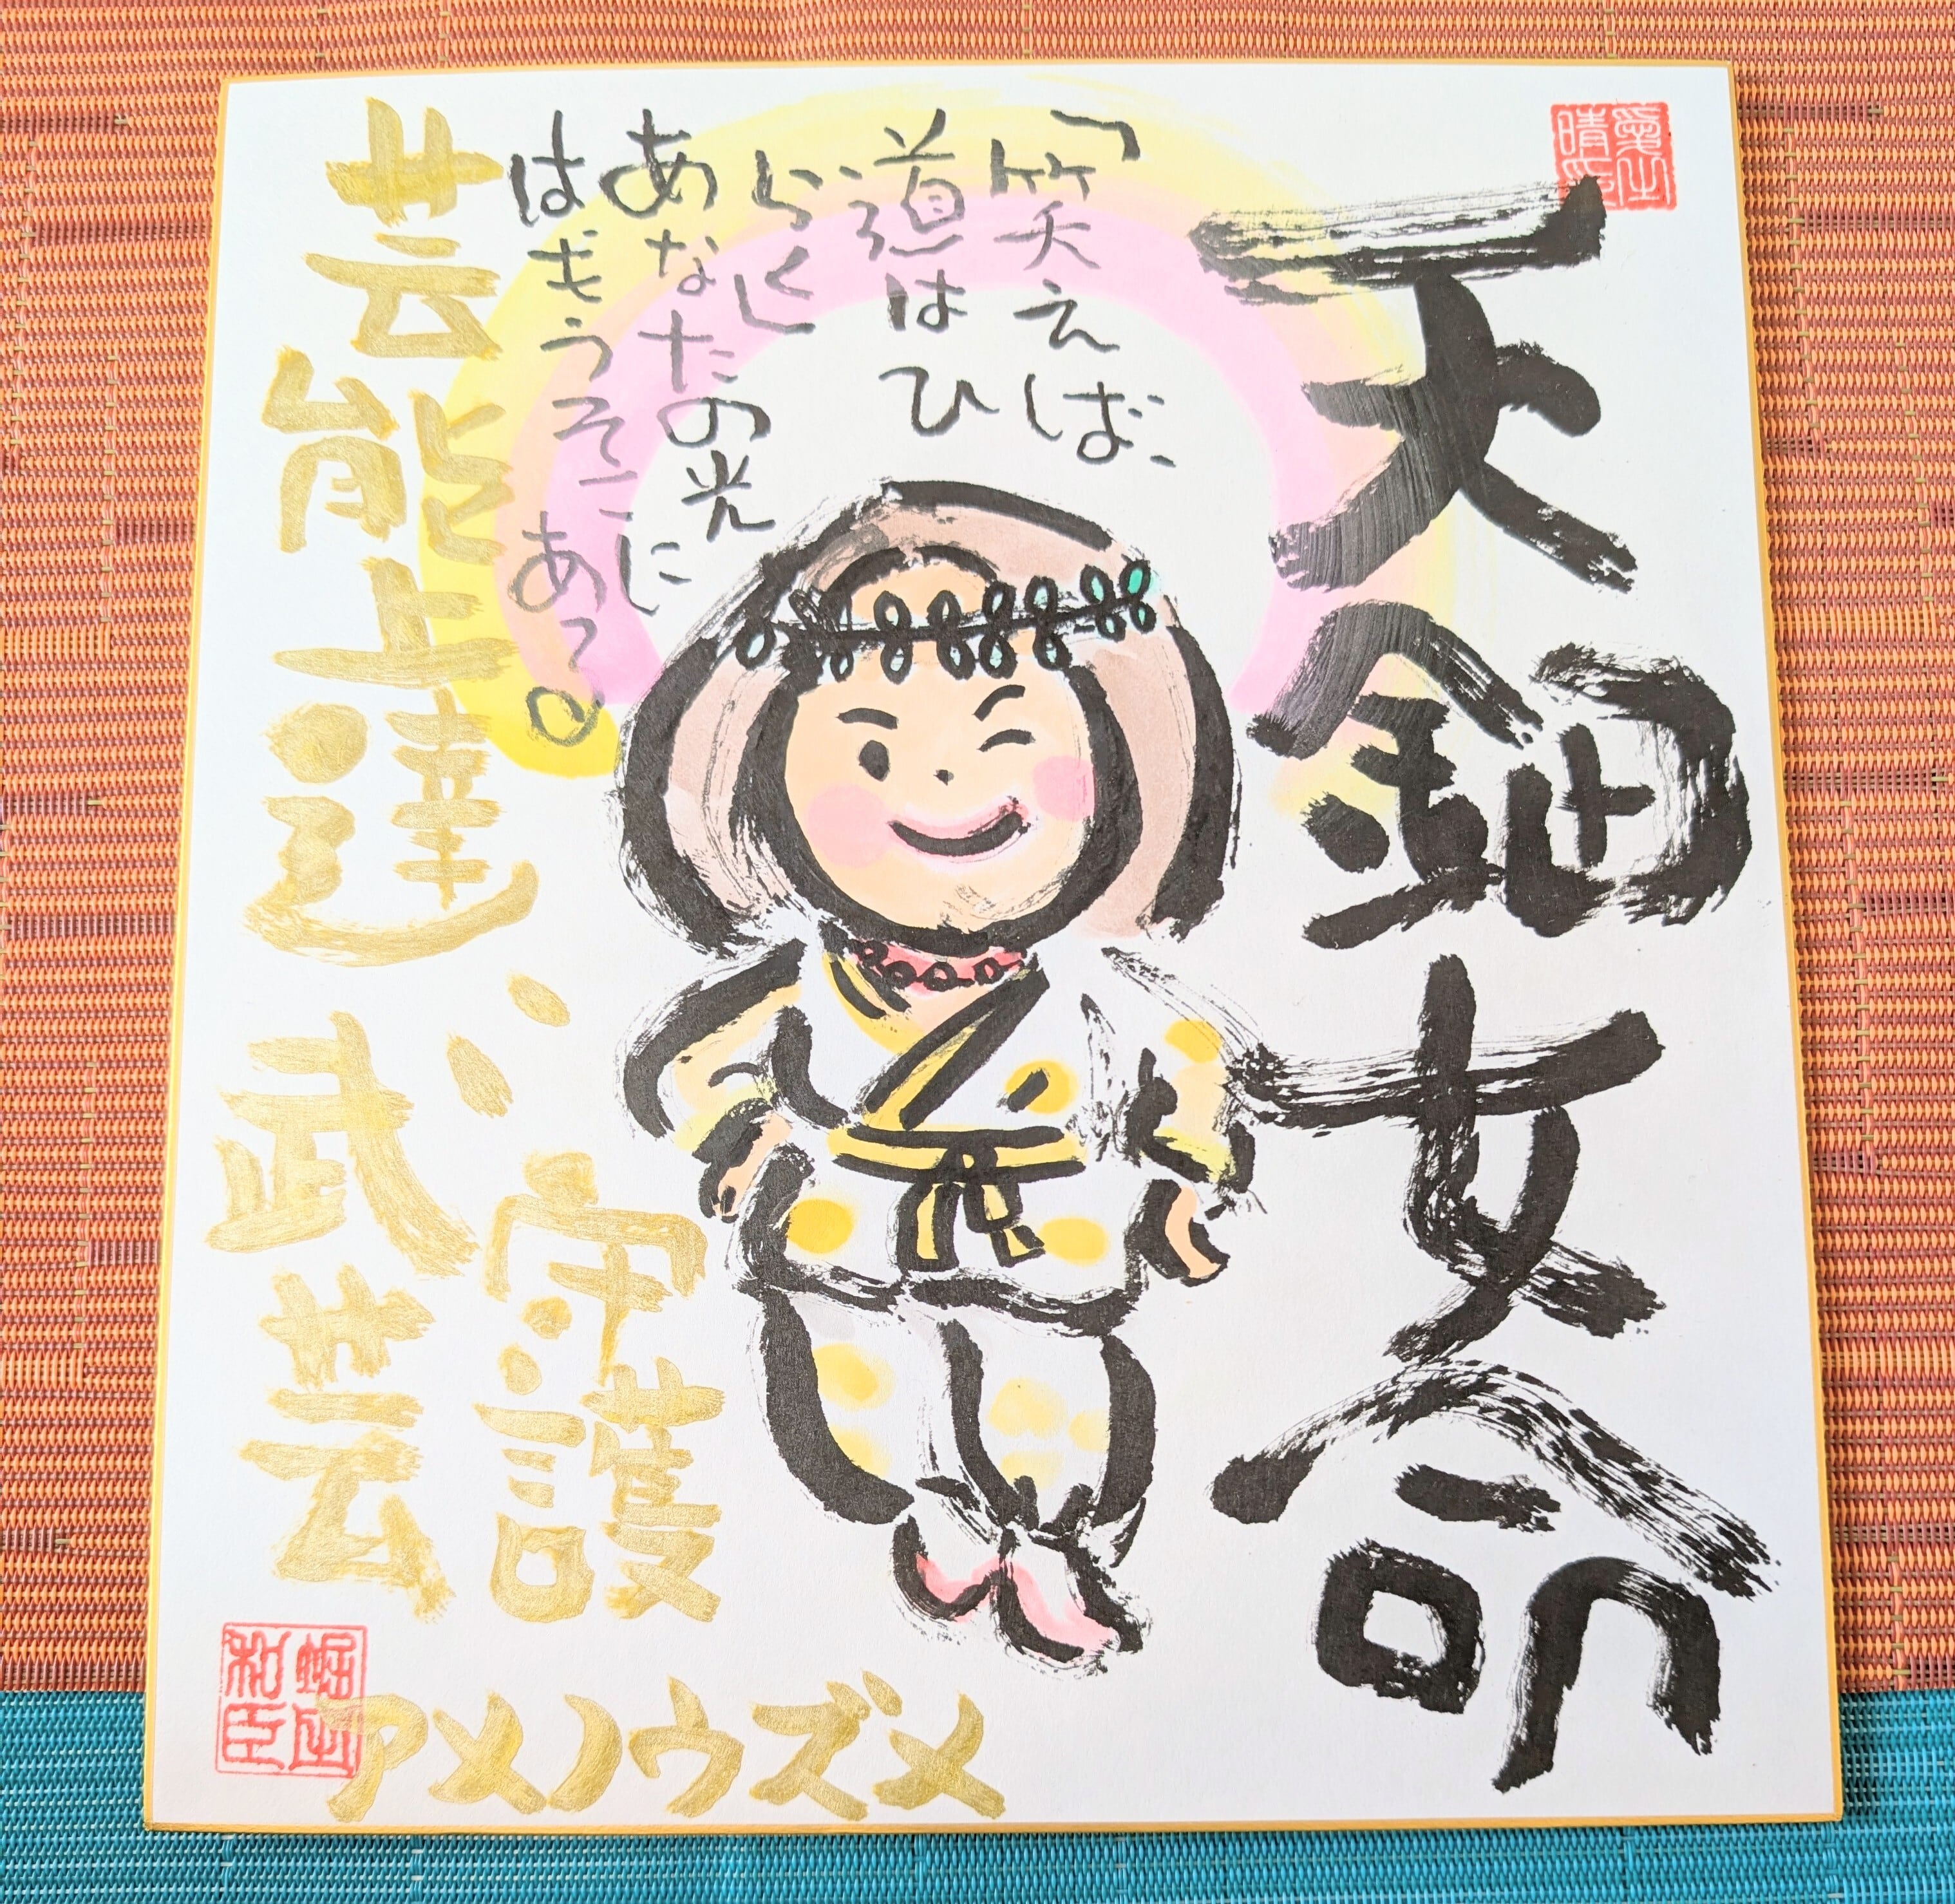 天鈿女命
「笑えば、
道はひ
らく」
あなたの光
はもうそこに
ある。
芸能上達、武芸
守護
アメノウズメ